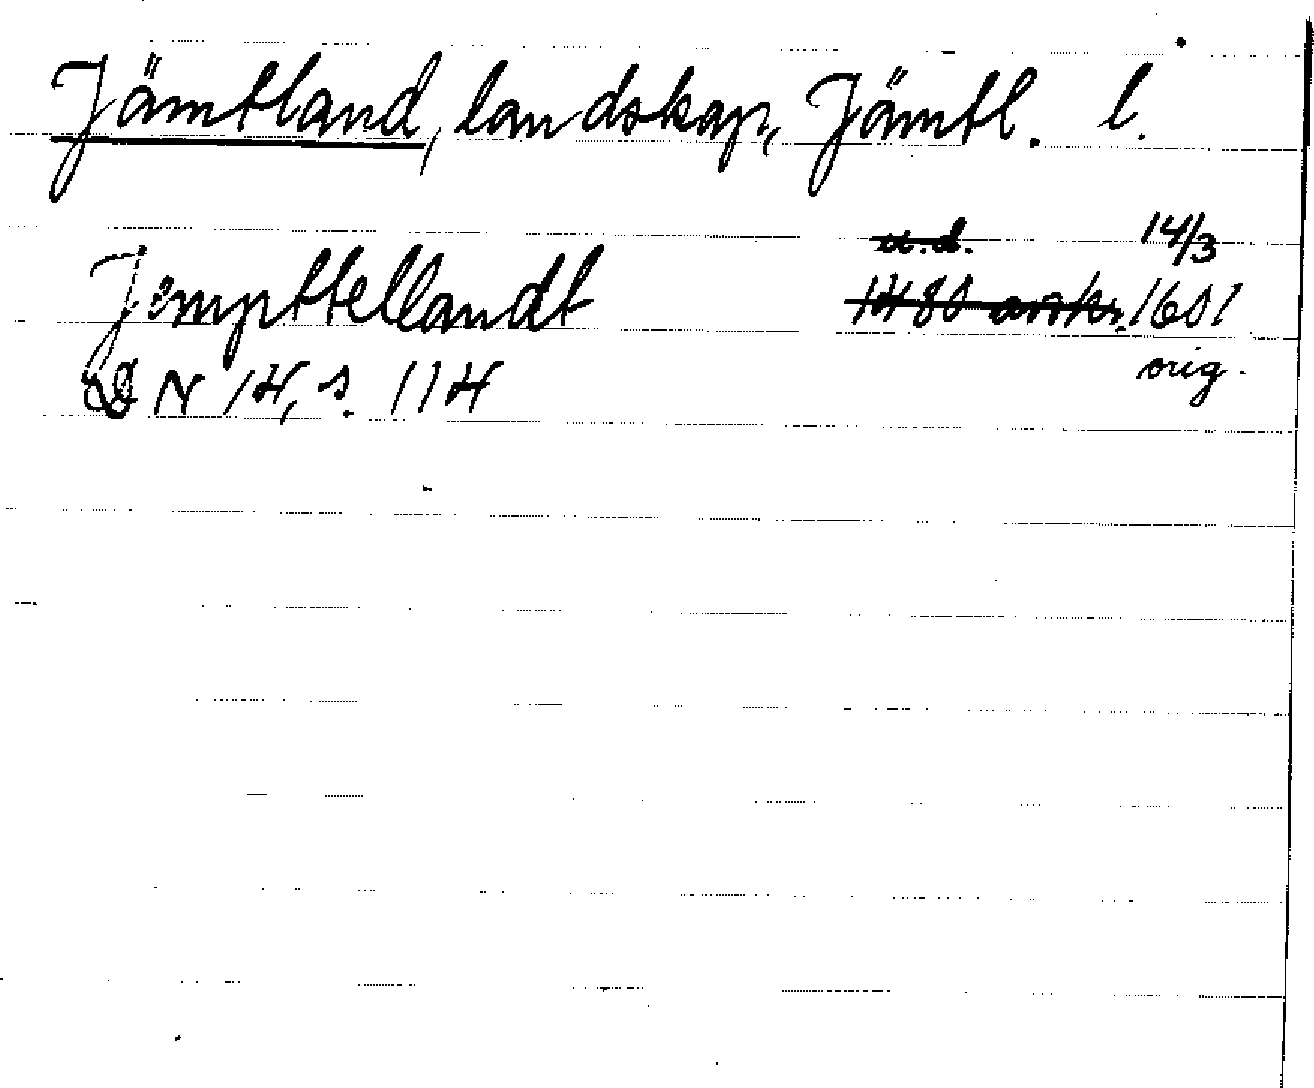 Jämtland, landskap, Jämtl. l.
u.d. 14/3
Jempttellandt 1480 avskr. 1601
orig.
DN 14, s. 114